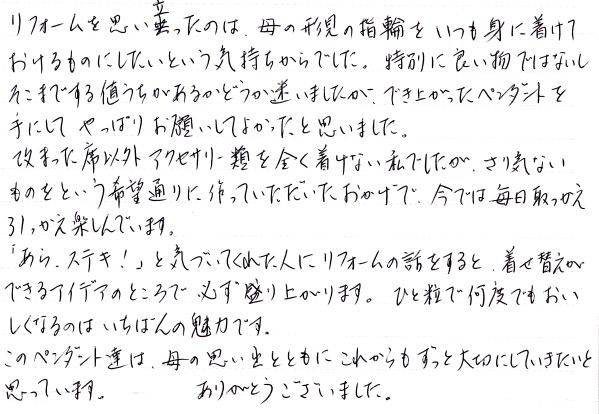 リフォームを思い立ったのは、母の形見の指輪をいつも身に着けて
おけるものにしたいという気持ちからでした。特別に良い物ではないし
そこまでする値うちがあるかどうか迷いましたが、でき上がったペンダントを
手にして やっぱりお願いしてよかったと思いました。
改まった席以外アクセサリー類を全く着けない私でしたが、さり気ない
ものをという希望通りに作っていただいたおかげで、今では毎日取っかえ
引っかえ楽しんでいます。
「あら、ステキ！」と気づいてくれた人にリフォームの話をすると、着せ替えが
できるアイデアのところで必ず盛り上がります。ひと粒で何度でもおい
しくなるのはいちばんの魅力です。
このペンダント達は、母の思い出とともにこれからもずっと大切にしていきたいと
思っています。 ありがとうございました。